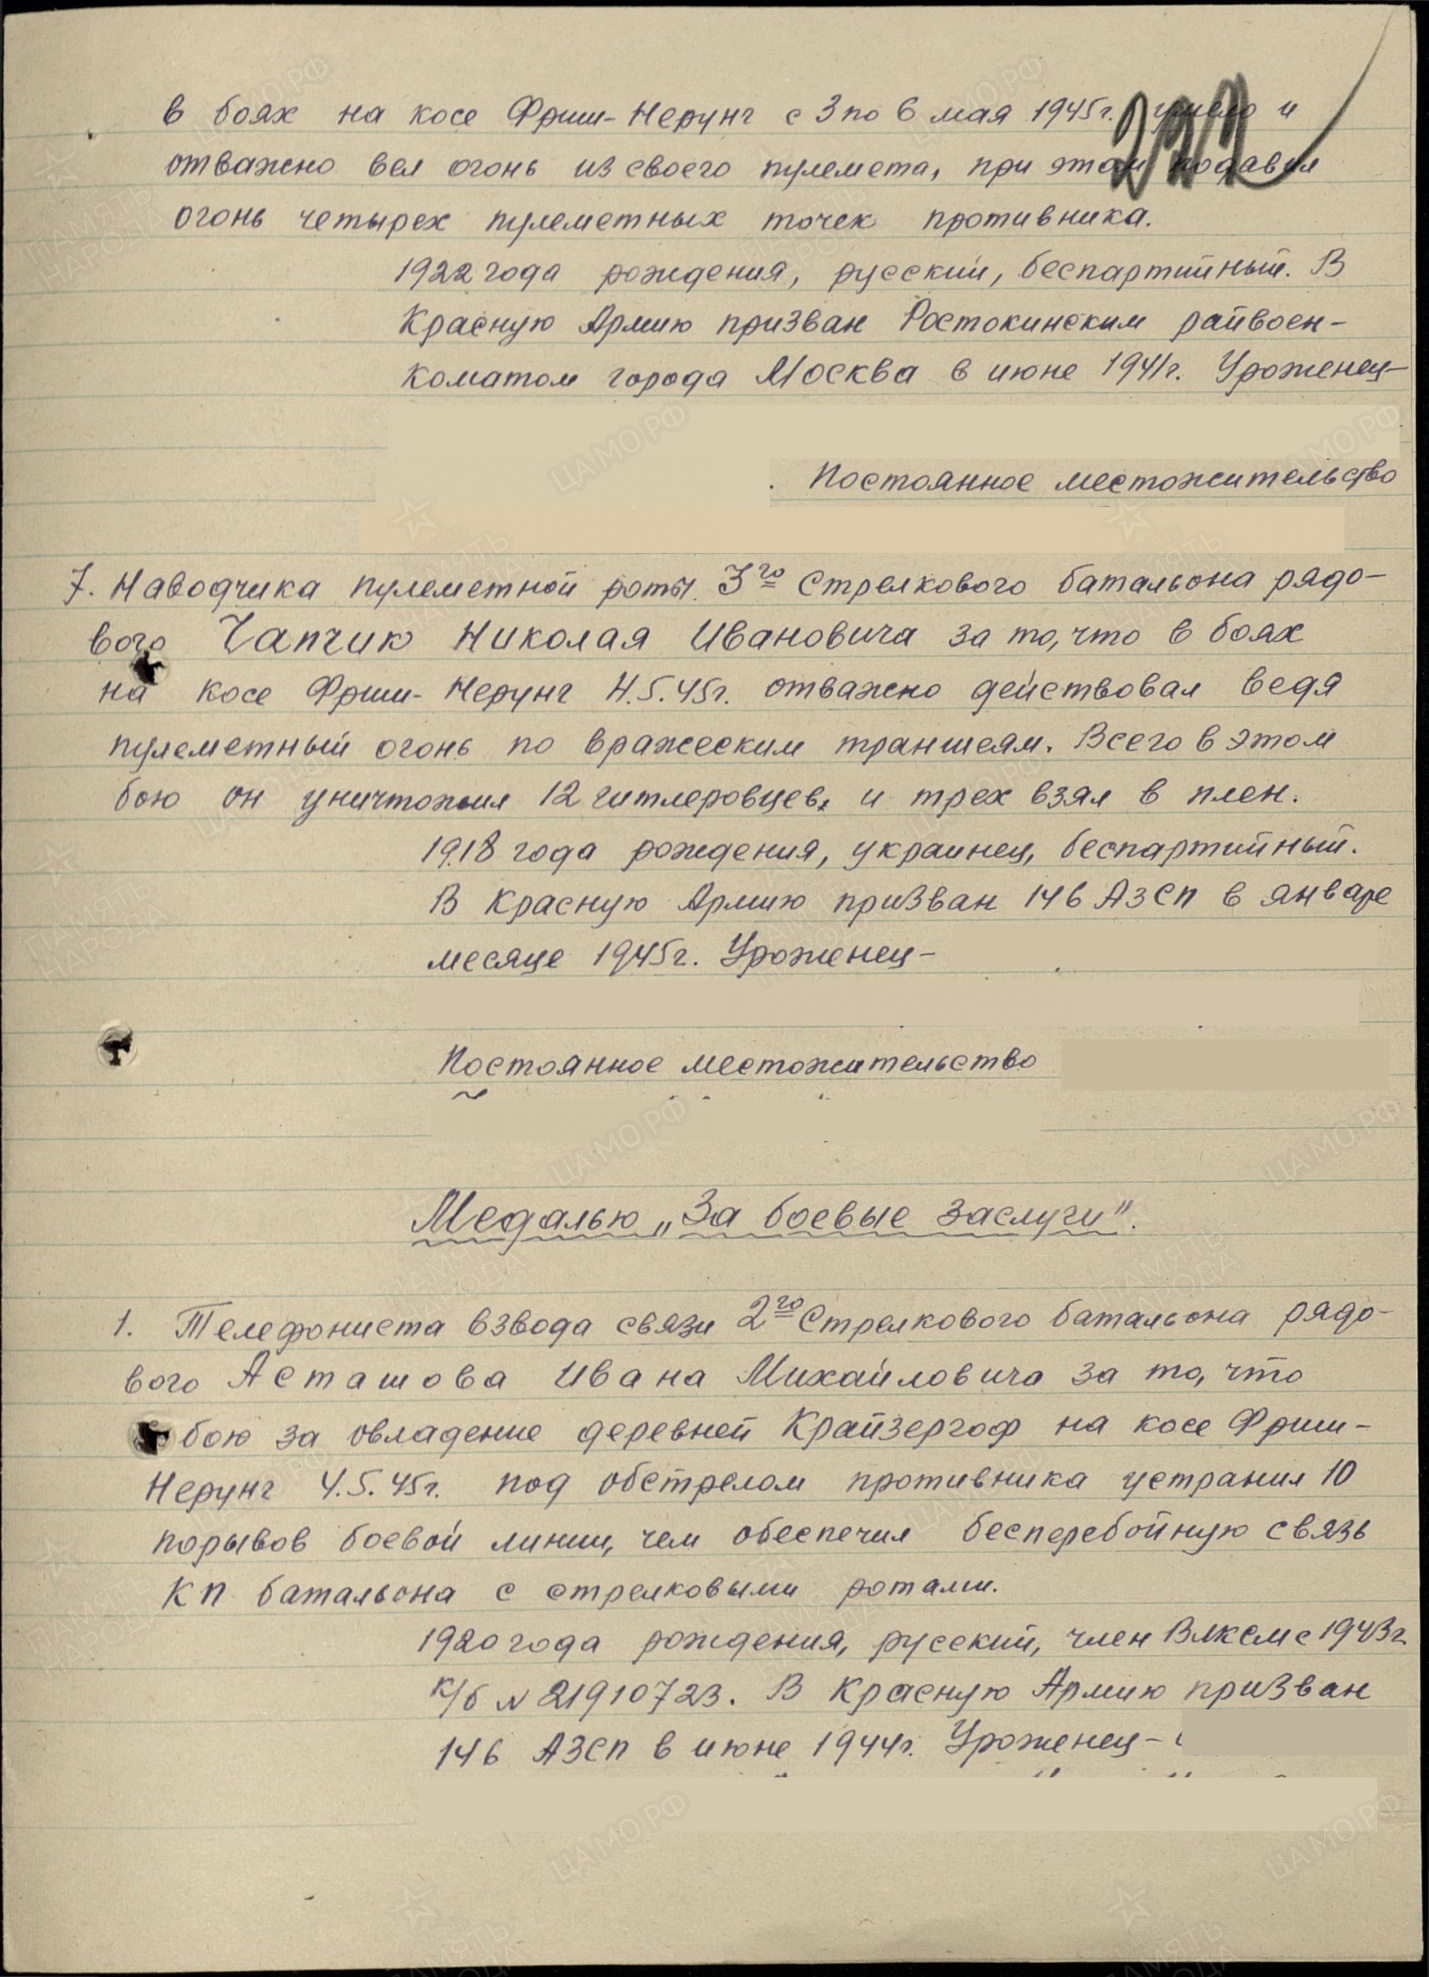 в боях на косе Фриш-Нерунг с 3 по 6 мая 1945г. умело и
отважно вел огонь из своего пулемета, при этом подавил
огонь четырех пулеметных точек противника.
1922 года рождения, русский, беспартийный. В
Красную Армию призван Ростокинским райвоен-
коматом города Москва в июне 1941г. Уроженец-
Постоянное местожительство
7. Наводчика пулеметной роты 3го Стрелкового батальона рядо-
вого Чапчик Николая Ивановича за то, что в боях
на косе Фриш-Нерунг 4.5.45г. отважно действовал ведя
пулеметный огонь по вражеским траншеям. Всего в этом
бою он уничтожил 12 гитлеровцев, и трех взял в плен.
1918 года рождения, украинец, беспартийный.
В Красную Армию призван 146 АЗСП в январе
месяце 1945г. Уроженец-
Постоянное местожительство
Медалью „За боевые заслуги".
1. Телефониста взвода связи 2го Стрелкового батальона рядо-
вого Асташова Ивана Михайловича за то, что
бою за овладение деревней Крайзергоф на косе Фриш-
Нерунг 4.5.45г. под обстрелом противника устранил 10
порывов боевой линии, чем обеспечил бесперебойную связь
КП батальона с стрелковыми ротами.
1920 года рождения, русский, член ВЛКСМ с 1943г.
к/б № 21910723. В Красную Армию призван
146 АЗСП в июне 1944г. Уроженец-